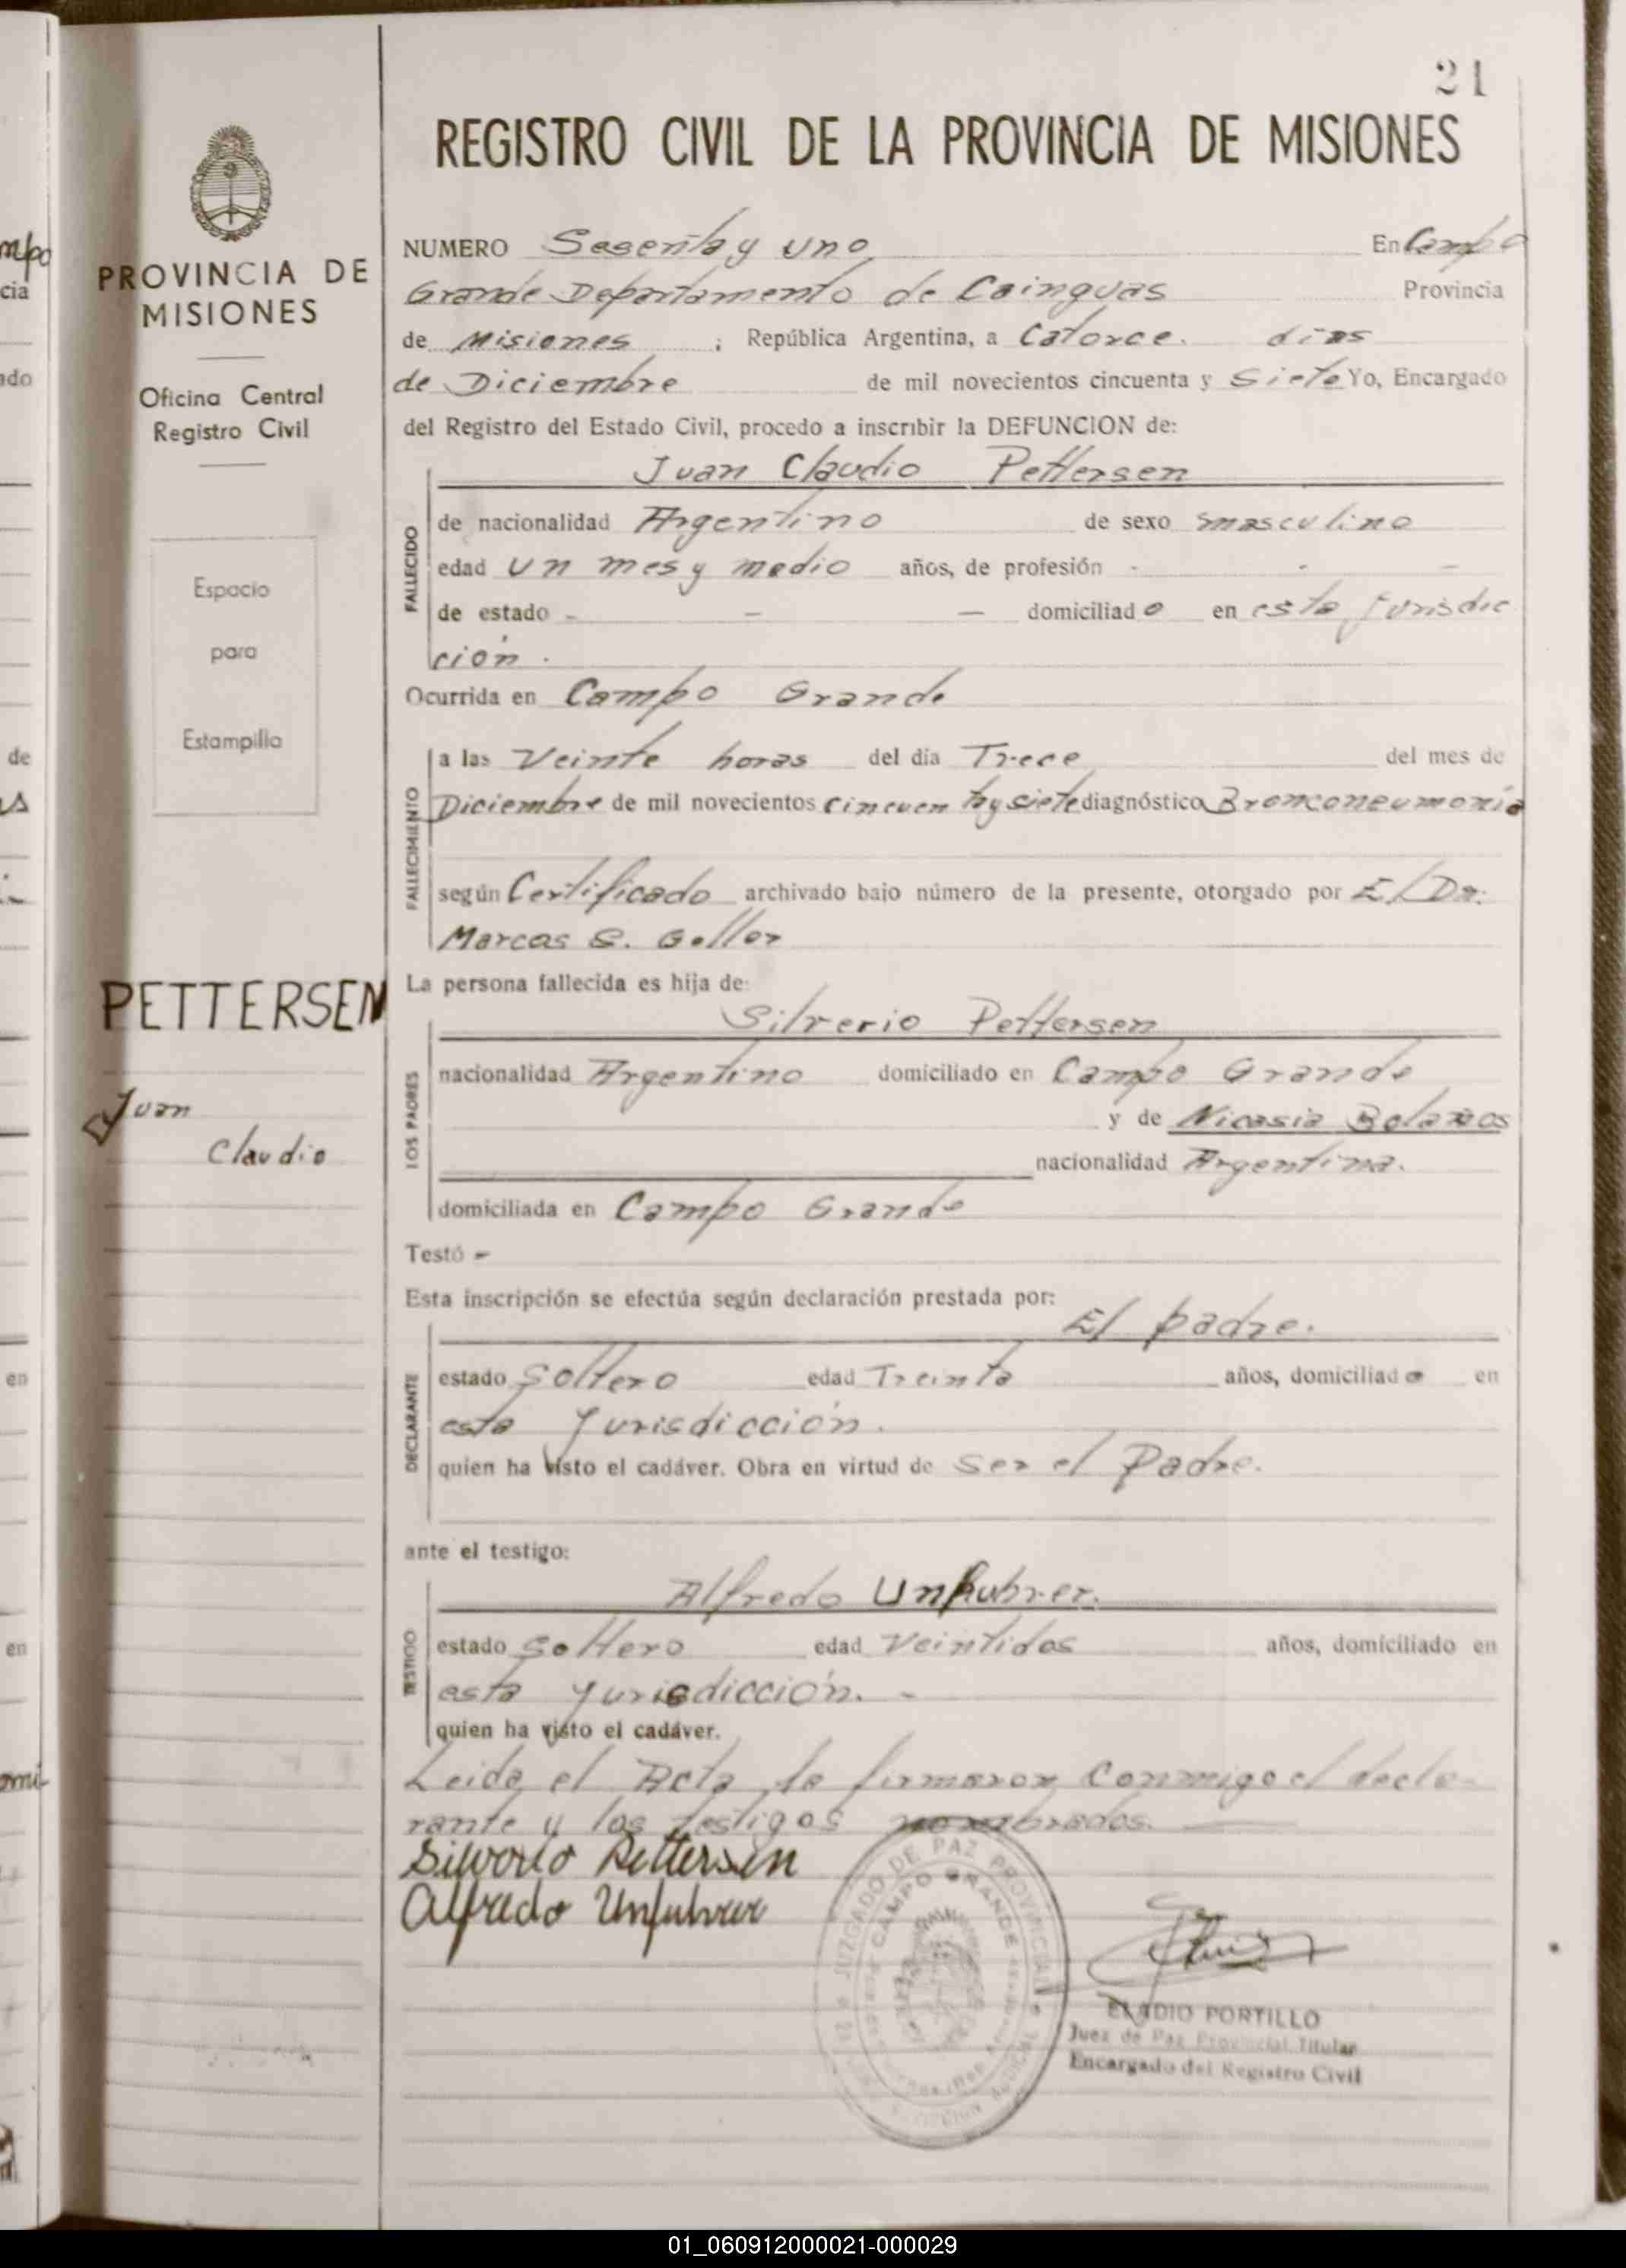 21
REGISTRO CIVIL DE LA PROVINCIA DE MISIONES
PROVINCIA DE
MISIONES
Oficina Central
Registro Civil
Espacio
para
Estampilla
PETTERSEN
Juan
Claudio
NUMERO Sesenta y uno En Campo
Grande Departamento de Cainguas Provincia
de Misiones ; República Argentina, a Catorce. dias
de Diciembre de mil novecientos cincuenta y Siete Yo, Encargado
del Registro del Estado Civil, procedo a inscribir la DEFUNCION de:
Juan Claudio Pettersen
FALLECIDO
de nacionalidad Argentino de sexo masculino
edad un mes y medio años, de profesión - - -
de estado - - - domiciliado en esta Jurisdic
ción.
Ocurrida en Campo Grande
FALLECIMIENTO
a las Veinte horas del día Trece del mes de
Diciembre de mil novecientos cincuenta y siete diagnóstico Bronconeumonía
según Certificado archivado bajo número de la presente, otorgado por El Dr.
Marcos S. Geller
La persona fallecida es hija de:
Silverio Pettersen
LOS PADRES
nacionalidad Argentino domiciliado en Campo Grande
y de Nicasia Bolaños
nacionalidad Argentina.
domiciliada en Campo Grande
Testó -
Esta inscripción se efectúa según declaración prestada por:
El padre.
DECLARANTE
estado Soltero edad Treinta años, domiciliado en
esta Jurisdicción.
quien ha visto el cadáver. Obra en virtud de Ser el Padre.
ante el testigo:
Alfredo Unfuhrer.
TESTIGO
estado Soltero edad Veintidos años, domiciliado en
esta Jurisdicción. -
quien ha visto el cadáver.
Leida el Acta la firmaron Conmigo el decla-
rante y los testigos nombrados.
Silverio Pettersen
Alfredo Unfuhrer
JUZGADO DE PAZ PROVINCIAL
CAMPO GRANDE
ELADIO PORTILLO
Juez de Paz Provincial Titular
Encargado del Registro Civil
01_060912000021-000029